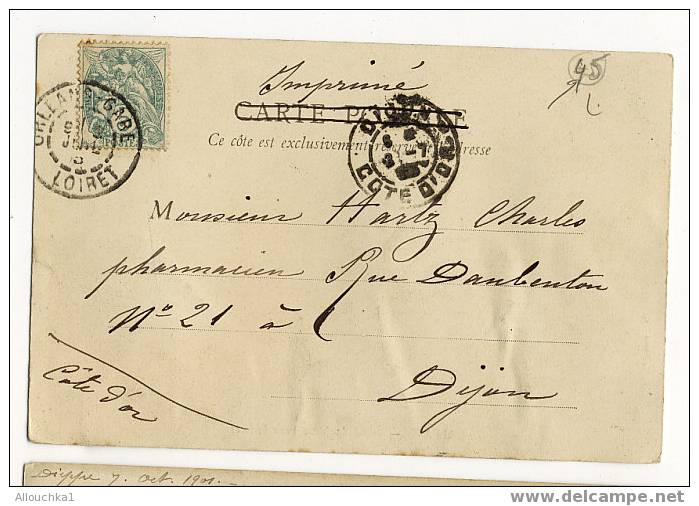 45
Imprimé
CARTE POSTALE
Ce côté est exclusivement réservé à l'adresse
ORLEANS-GARE
LOIRET
DIJON
COTE D'OR
Monsieur Hartz Charles
pharmacien Rue Daubenton
No 21 à
Dijon
Côte d'or
Dieppe 7. Oct. 1901.
Allouchka1
delcampe.net